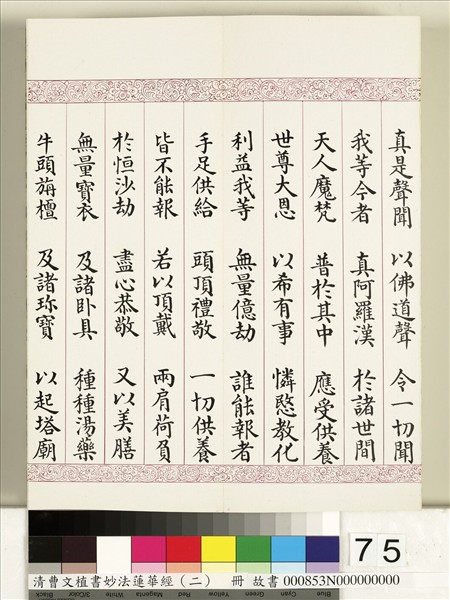 真是聲聞 以佛道聲 令一切聞
我等今者 真阿羅漢 於諸世間
天人魔梵 普於其中 應受供養
世尊大恩 以希有事 憐愍教化
利益我等 無量億劫 誰能報者
手足供給 頭頂禮敬 一切供養
皆不能報 若以頂戴 兩肩荷負
於恒沙劫 盡心恭敬 又以美膳
無量寶衣 及諸卧具 種種湯藥
牛頭旃檀 及諸珎寶 以起塔廟
75
清曹文植書妙法蓮華經（二） 冊 故書 000853N000000000
Black 3/Color White Magenta Red Yellow Green Cyan Blue